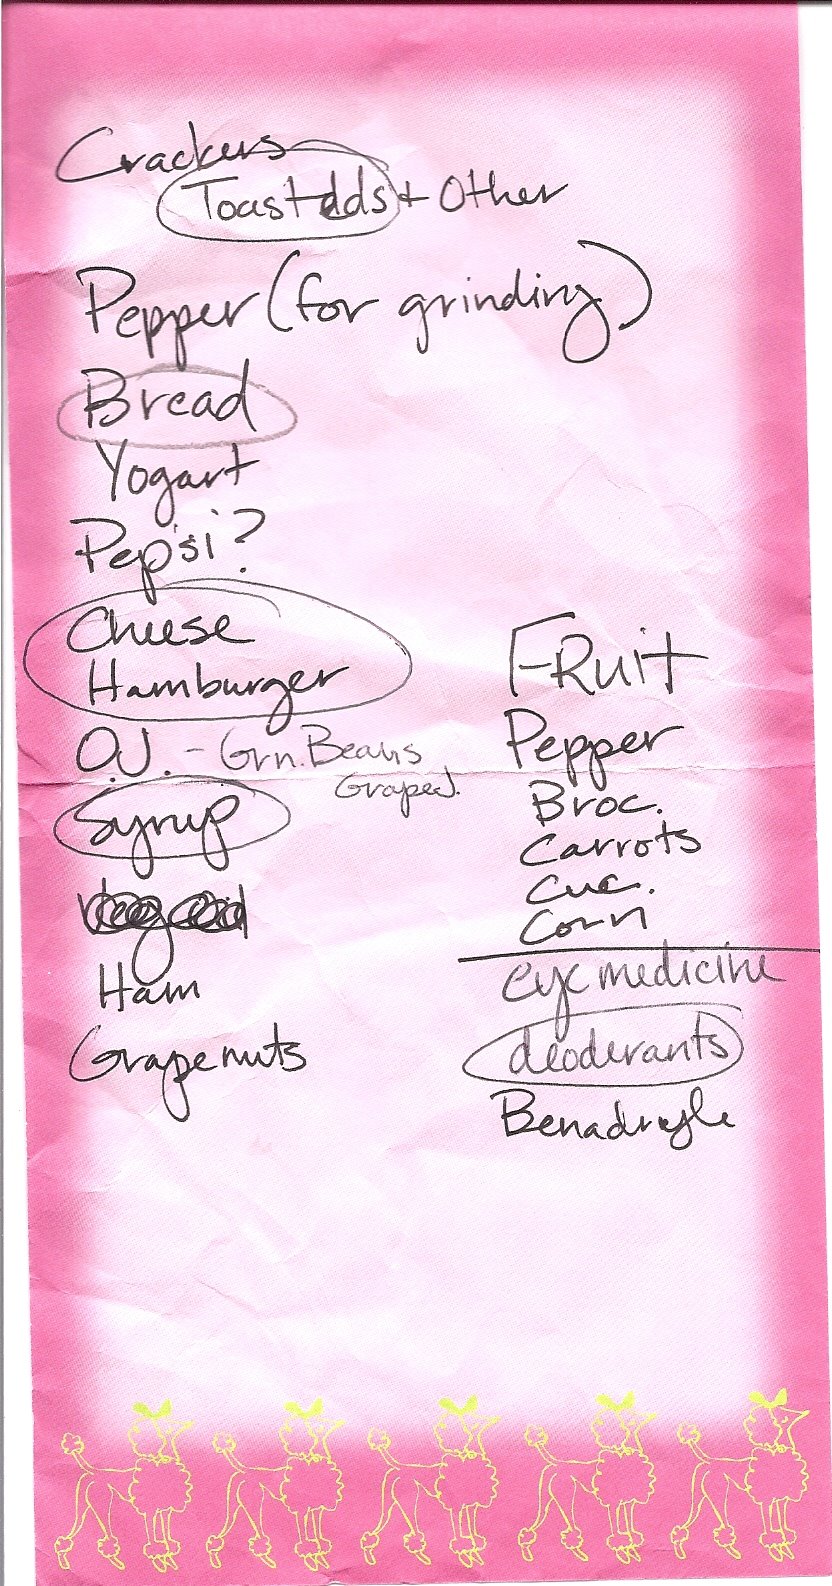 Crackers
Toastdds + Other
Pepper (for grinding)
Bread
Yogart
Pepsi?
Cheese
Hamburger
O.J. - Grn. Beans
Syrup
Ham
Grapenuts
FRuit
Pepper
Broc.
Carrots
Cuc.
Corn
eye medicine
deoderants
Benadryle